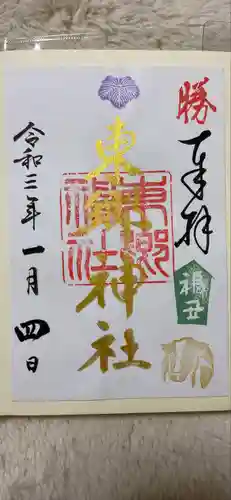 勝
奉拝
福丑
東郷神社
東郷
神社
令和三年一月四日